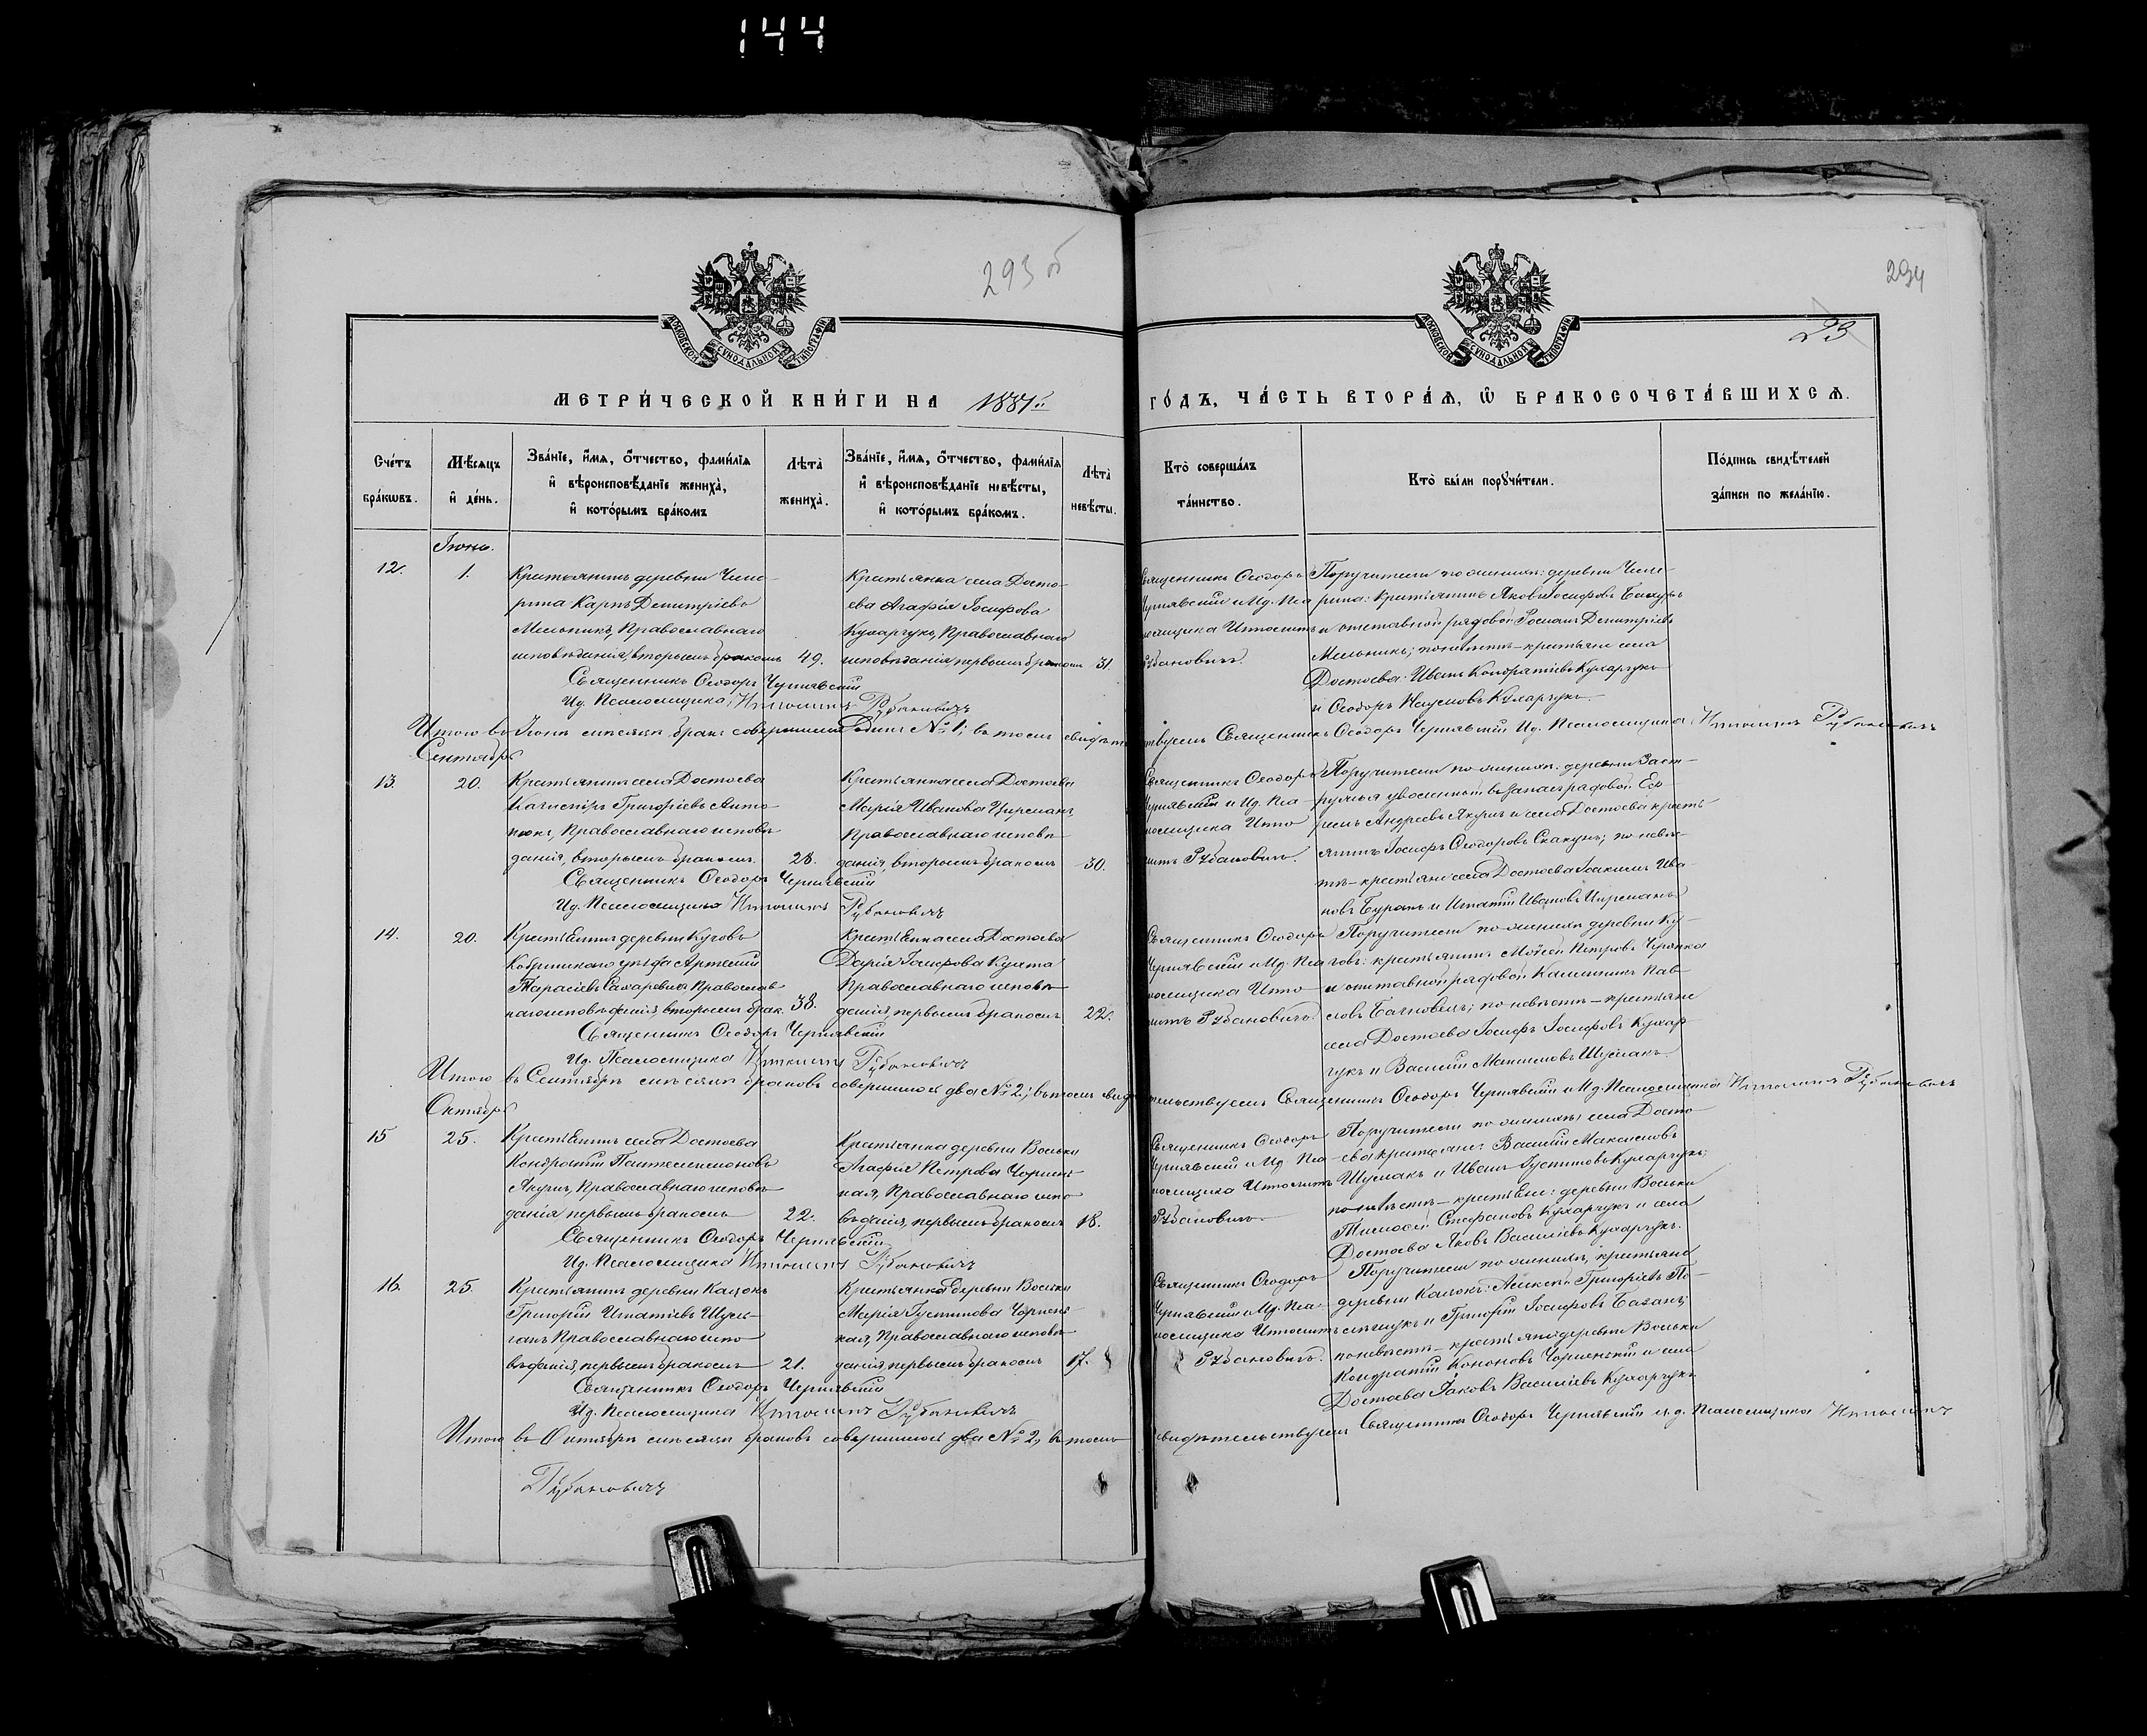 144
293 об
294
23
МОСКОВСКОЙ СѴНОДАЛЬНОЙ ТИПОГРАФІИ
МОСКОВСКОЙ СѴНОДАЛЬНОЙ ТИПОГРАФІИ
МЕТРИ́ЧЕСКОЙ КНИ́ГИ НА 1881й
ГО́ДЪ, ЧА́СТЬ ВТОРА́Ѧ, Ѡ҆ БРАКОСОЧЕТА́ВШИХСѦ.
Сче́тъ бра́кѡвъ.
Мѣ́сѧцъ и҆ де́нь.
Зва́нїе, и҆́мѧ, ѻ҆́тчество, фами́лїѧ
и҆ вѣроисповѣ́данїе жениха̀,
и҆ кото́рымъ бра́комъ
Лѣта̀ жениха̀.
Зва́нїе, и҆́мѧ, ѻ҆́тчество, фами́лїѧ
и҆ вѣроисповѣ́данїе невѣ́сты,
и҆ кото́рымъ бра́комъ.
Лѣта̀ невѣ́сты.
Кто̀ соверша́лъ та́инство.
Кто̀ бы́ли порꙋчи́тели.
По́дпись свидѣ́телей за́писи по жела́нїю.
Іюнь.
12.
1.
Крестьянинъ деревни Чеме-
рина Карпъ Димитріевъ
Мельникъ, Православнаго
исповѣданія, вторымъ бракомъ
49.
Крестьянка села Досто-
ева Агафія Іосифова
Кухарчукъ, Православнаго
исповѣданія первымъ бракомъ
31.
Священникъ Ѳеодоръ
Чернявскій и Ид. Пса
ломщика Ипполитъ
Рубановичъ.
Поручители по женихѣ: деревни Чеме-
рина: крестьянинъ Яковъ Іосифовъ
и отставной рядовой Романъ Димитріевъ
Мельникъ; по невѣстѣ – крестьяне села
Достоева: Иванъ Кондратіевъ Кухарчукъ
и Ѳеодоръ Наумовъ Кухарчукъ.
Священникъ Ѳеодоръ Чернявскій
Ид. Псаломщика Ипполитъ Рубановичъ
Итого въ Іюнѣ мѣсяцѣ бракъ совершился Одинъ № 1; въ томъ свидѣтельствуемъ Священникъ Ѳеодоръ Чернявскій Ид. Псаломщика Ипполитъ Рубановичъ
Сентябрь
13.
20.
Крестьянинъ села Достоева
Калистръ Григоріевъ Анто-
нюкъ, Православнаго исповѣ
данія, вторымъ бракомъ.
28.
Крестьянка села Достоева
Марія Иванова Цирсманъ,
Православнаго исповѣ
данія, вторымъ бракомъ
30.
Священникъ Ѳеодоръ
Чернявскій и Ид. Пса-
ломщика Иппо
литъ Рубановичъ.
Поручители по женихѣ: деревни Заст-
ружья уволенный въ запасъ рядовой Еф-
ремъ Андреевъ Якушъ и села Достоева кресть-
янинъ Іосифъ Ѳеодоровъ Скакунъ; по невѣс-
тѣ – крестьяне села Достоева Іоакимъ Ива-
новъ Буракъ и Игнатій Ивановъ Цирсманъ
Священникъ Ѳеодоръ Чернявскій
Ид. Псаломщика Ипполитъ Рубановичъ
14.
20.
Крестьянинъ деревни
Кобринскаго уѣзда Артемій
Тарасіевъ Сахаревичъ Православ-
наго исповѣданія, вторымъ брак.
38.
Крестьянка села Достоева
Дарія Іосифова
Православнаго исповѣ
данія, первымъ бракомъ
22.
Священникъ Ѳеодоръ
Чернявскій и Ид. Пса
ломщика Иппо-
литъ Рубановичъ
Поручители по женихѣ деревни
крестьянинъ Мойсей Петровъ
и отставной рядовой Калинникъ Пав-
ловъ; по невѣстѣ – крестьяне
села Достоева Іосифъ Іосифовъ Кухар-
чукъ и Василій Максимовъ Шумакъ.
Священникъ Ѳеодоръ Чернявскій
Ид. Псаломщика Ипполитъ Рубановичъ
Итого въ Сентябрѣ мѣсяцѣ браковъ совершилось два № 2; въ томъ свидѣтельствуемъ Священникъ Ѳеодоръ Чернявскій и Ид. Псаломщика Ипполитъ Рубановичъ
Октябрь
15
25.
Крестьянинъ села Достоева
Кондратій Пантелеимоновъ
Якушъ, Православнаго исповѣ-
данія первымъ бракомъ
22.
Крестьянка деревни Вольки
Агафія Петрова Чорнень-
кая, Православнаго испо
вѣданія, первымъ бракомъ
18.
Священникъ Ѳеодоръ
Чернявскій и Ид. Пса
ломщика Ипполитъ
Рубановичъ.
Поручители по женихѣ: села Досто-
ева крестьяне: Василій Максимовъ
Шумакъ и Иванъ Густиновъ Кухарчукъ;
по невѣстѣ – крестьяне: деревни Вольки
Тимоѳей Стефановъ Кухарчукъ и села
Достоева Яковъ Василіевъ Кухарчукъ.
Священникъ Ѳеодоръ Чернявскій
Ид. Псаломщика Ипполитъ Рубановичъ
16.
25.
Крестьянинъ деревни
Григорій Игнатіевъ
Православнаго испо
вѣданія, первымъ бракомъ
21.
Крестьянка деревни Вольки
Марія Густинова Чорнень-
кая, Православнаго исповѣ
данія первымъ бракомъ
17.
Священникъ Ѳеодоръ
Чернявскій и Ид. Пса-
ломщика Ипполитъ
Рубановичъ.
Поручители по женихѣ, крестьяне
деревни: Алексѣй Григоріевъ
и Григорій Іосифовъ
по невѣстѣ – крестьяне деревни Вольки
Кондратій Кононовъ Чорненькій и села
Достоева Іаковъ Василіевъ Кухарчукъ
Священникъ Ѳеодоръ Чернявскій
Ид. Псаломщика Ипполитъ Рубановичъ
Итого въ Октябрѣ мѣсяцѣ браковъ совершилось два № 2, въ томъ свидѣтельствуемъ Священникъ Ѳеодоръ Чернявскій и. д. Псаломщика Ипполитъ
Рубановичъ